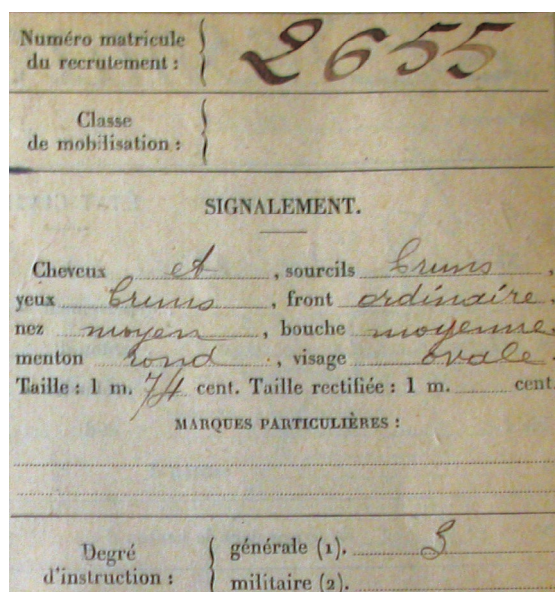 Numéro matricule du recrutement : 2655
Classe de mobilisation :
SIGNALEMENT.
Cheveux et, sourcils bruns,
yeux bruns, front ordinaire,
nez moyen, bouche moyenne,
menton rond, visage ovale.
Taille : 1 m. 74 cent. Taille rectifiée : 1 m. cent.
MARQUES PARTICULIÈRES :
Degré d'instruction :
générale (1). 3
militaire (2).